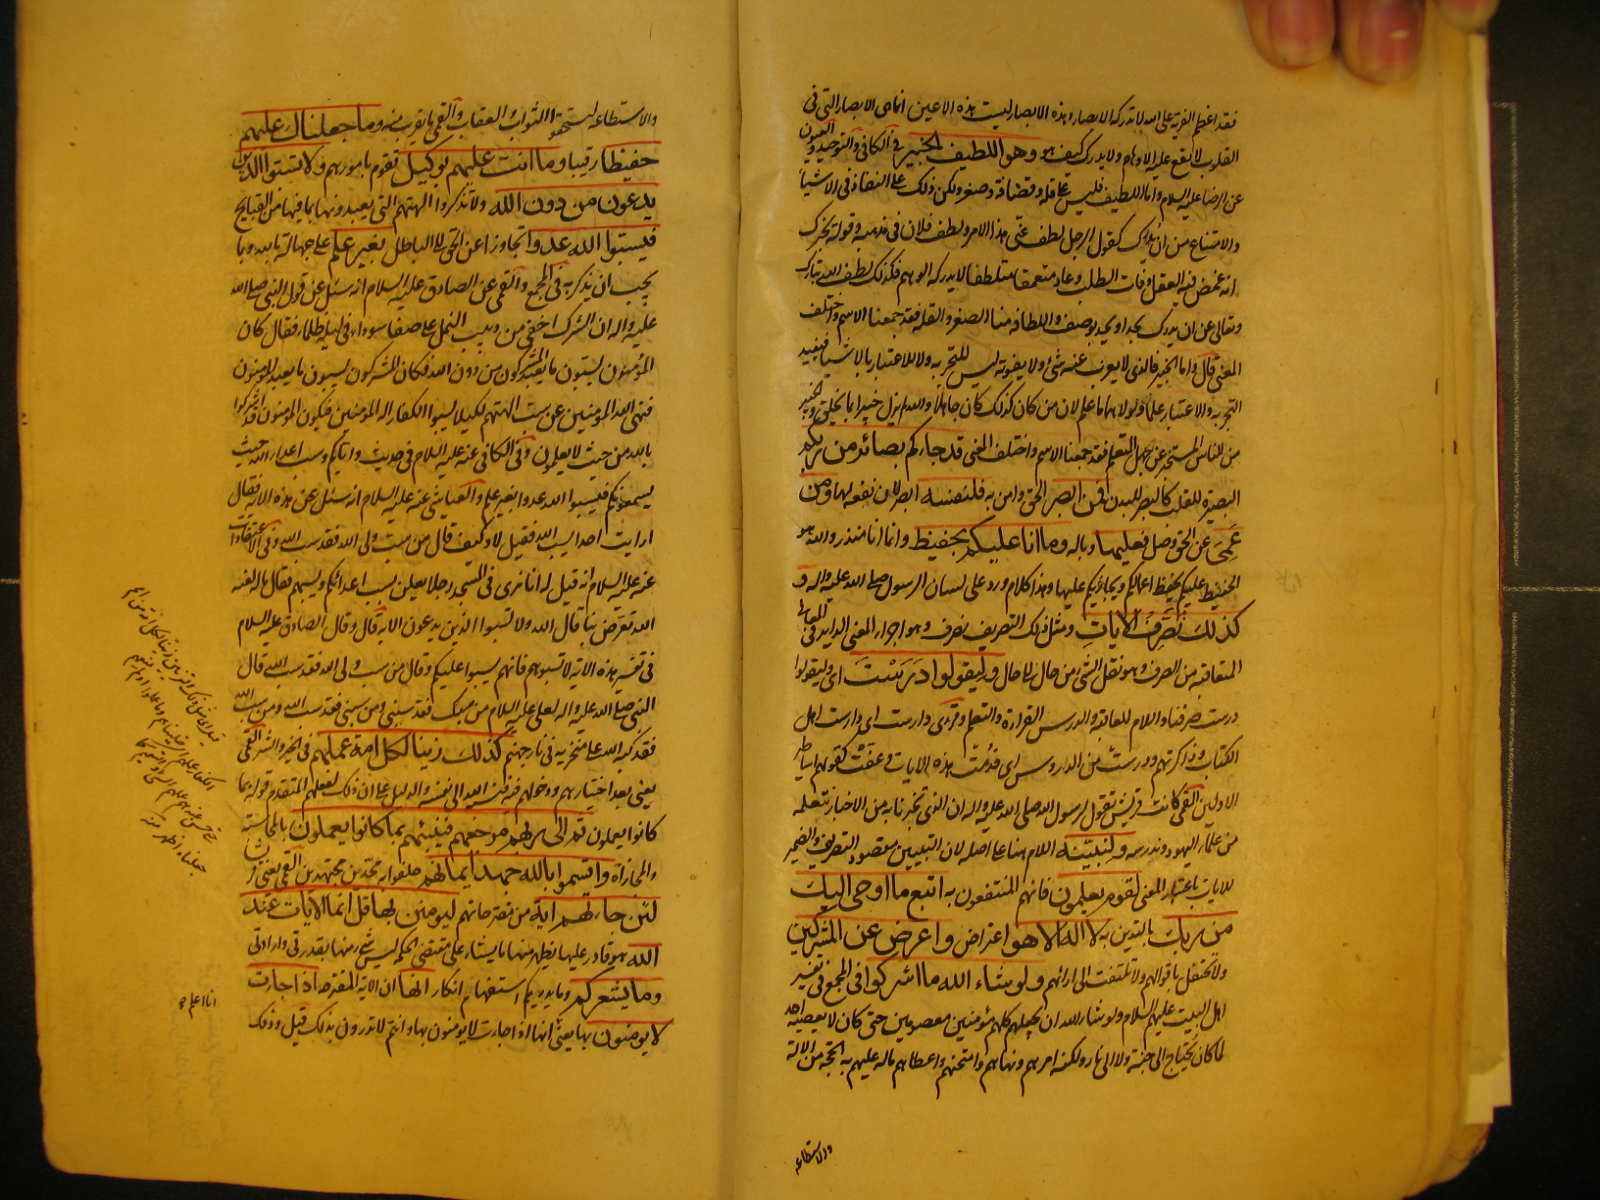 فقد اعظم الفرية على الله لا تدركه الابصار وهذه الابصار ليست هذه الاعين انما هي الابصار التي في
القلوب لا يقع عليه الاوهام ولا يدرك كيف هو وهو اللطيف الخبير في الكافي والتوحيد والعيون
عن الرضا عليه السلام واما اللطيف فليس على قلة وقضافة وصغر ولكن ذلك على النفاذ في الاشياء
والامتناع من ان يدرك كقول الرجل لطف عني هذا الامر ولطف فلان في مذهبه وقوله يخبرك
انه غمض فيه العقل وفات الطلب وعاد متعمقا متلطفا لا يدركه الوهم فكذلك لطف الله تبارك
وتعالى عن ان يدرك بحد او يحد بوصف واللطافة منا الصغر والقلة فقد جمعنا الاسم واختلف
المعنى قال واما الخبير فالذي لا يعزب عنه شئ ولا يفوته ليس للتجربة ولا للاعتبار بالاشياء فيفيد
التجربة والاعتبار علما ولولاهما ما علم لان من كان كذلك كان جاهلا والله لم يزل خبيرا بما يخلق والخبير
من الناس المستخبر عن جهل المتعلم فقد جمعنا الاسم واختلف المعنى قد جاءكم بصائر من ربكم
البصيرة للقلب كالبصر للبدن فمن ابصر الحق وامن به فلنفسه ابصر لان نفعه لها ومن
عمى عن الحق وضل فعليها وباله وما انا عليكم بحفيظ وانما انا منذر والله هو
الحفيظ عليكم يحفظ اعمالكم ويجازيكم عليها وهذا كلام ورد على لسان الرسول صلى الله عليه واله و
كذلك نصرف الايات ومثل ذلك التصريف نصرف وهو اجراء المعنى الدائر في المعاني
المتعاقبة من الصرف وهو نقل الشئ من حال الى حال وليقولوا درست اي وليقولوا
درست صرفنا واللام للعاقبة والدرس القراءة والتعلم وقرئ دارست اي دارست اهل
الكتاب وذاكرتهم ودرست من الدروس اي قدمت هذه الايات وعفت كقولهم اساطير
الاولين القمي كانت قريش تقول لرسول الله صلى الله عليه واله ان الذي تخبرنا به من الاخبار تتعلمه
من علماء اليهود وتدرسه ولنبينه اللام هنا على اصله لان التبيين مقصود التصريف والضمير
للايات باعتبار المعنى لقوم يعلمون فانهم المنتفعون به اتبع ما اوحى اليك
من ربك بالتدين به لا اله الا هو اعتراض واعرض عن المشركين
ولا تحتفل باقوالهم ولا تلتفت الى ارائهم ولو شاء الله ما اشركوا في المجمع في تفسير
اهل البيت عليهم السلام ولو شاء الله ان يجعلهم كلهم مؤمنين معصومين حتى كان لا يعصيه احد
لما كان يحتاج الى جنة ولا الى نار ولكنه امرهم ونهاهم وامتحنهم واعطاهم ماله عليهم به الحجة من الالة
والاستطاعة
والاستطاعة ليستحقوا الثواب والعقاب والقمي ما يقرب منه وما جعلناك عليهم
حفيظا رقيبا وما انت عليهم بوكيل تقوم بامورهم ولا تسبوا الذين
يدعون من دون الله ولا تذكروا الهتهم التي يعبدونها بما فيها من القبايح
فيسبوا الله عدوا تجاوزا عن الحق الى الباطل بغير علم على جهالة بالله وبما
يجب ان يذكر به في المجمع والقمي عن الصادق عليه السلام انه سئل عن قول النبي صلى الله
عليه واله ان الشرك اخفى من دبيب النمل على صفا سوداء في ليلة ظلماء فقال كان
المؤمنون يسبون ما يعبد المشركون من دون الله فكان المشركون يسبون ما يعبد المؤمنون
فنهى الله المؤمنين عن سب الهتهم لكيلا يسبوا الكفار اله المؤمنين فيكون المؤمنون قد اشركوا
بالله من حيث لا يعلمون وفي الكافي عنه عليه السلام في حديث واياكم وسب اعداء الله حيث
يسمعونكم فيسبوا الله عدوا بغير علم والعياشي عنه عليه السلام انه سئل عن هذه الاية فقال
ارايت احدا يسب الله فقيل لا وكيف قال من سب ولي الله فقد سب الله وفي الاعتقادات
عنه عليه السلام انه قيل له انا نرى في المسجد رجلا يعلن بسب اعدائكم ويسبهم فقال ماله لعنه
الله تعرض بنا قال الله ولا تسبوا الذين يدعون الاية قال وقال الصادق عليه السلام
في تفسير هذه الاية لا تسبوهم فانهم يسبوا عليكم وقال من سب ولي الله فقد سب الله قال
النبي صلى الله عليه واله لعلي عليه السلام من سبك فقد سبني ومن سبني فقد سب الله ومن سب الله
فقد كبه الله على منخريه في نار جهنم كذلك زينا لكل امة عملهم في الخير والشر القمي
يعني بعد اختيارهم ودخولهم فيه فنسبه الله الى نفسه والدليل على ان ذلك لفعلهم المتقدم قوله بما
كانوا يعملون ثم الى ربهم مرجعهم فينبئهم بما كانوا يعملون بالمحاسبة
والمجازاة واقسموا بالله جهد ايمانهم حلفوا به مجدين مجتهدين القمي يعني قريشا
لئن جاءتهم اية من مقترحاتهم ليومنن بها قل انما الايات عند
الله هو قادر عليها يظهر منها ما يشاء على مقتضى الحكم ليس شئ منها بقدرتي وارادتي
وما يشعركم وما يدريكم استفهام انكار انها ان الاية المقترحة اذا جاءت
لا يومنون بها يعني انها اذا جاءت لا يومنون بها وانتم لا تدرون بذلك قيل وذلك